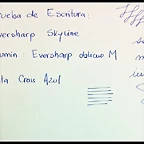 rueba de Escritura:
versharp Skyline
umín: Eversharp oblicuo M
ta Cross Azul